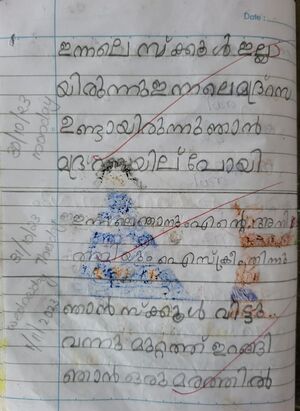 Date :
ഇന്നലെ സ്ക്കൂൾ ഇല്ലാ
യിരുന്നു ഇന്നലെ മദ്രസ
ഉണ്ടായിരുന്നു ഞാൻ
മദ്രസയില് പോയി
30/10/23
monday
ഇന്നലെ ഞാനും എന്റെ അനി
യും ഐസ്ക്രീം തിന്നു
31/10/23
ഞാൻ സ്ക്കൂൾ വിട്ടു
വന്നു മുറ്റത്ത് ഇറങ്ങി
ഞാൻ ഒരു മരത്തിൽ
1/11/2023